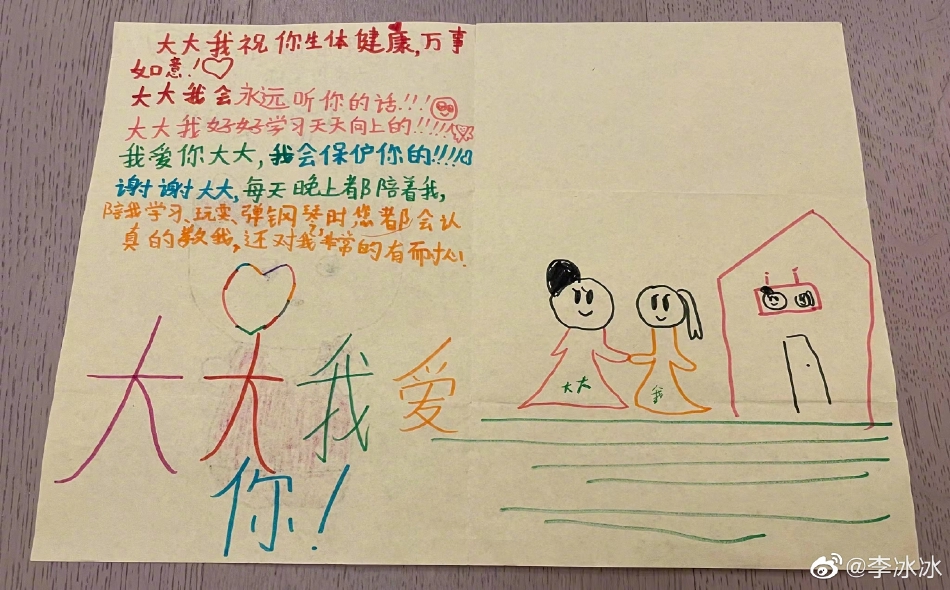 大大我祝你生体健康,万事
如意!♡
大大我会永远听你的话!!!
大大我好好学习天天向上的!!!!!
我爱你大大,我会保护你的!!!!
谢谢大大,每天晚上都陪着我,
陪我学习、玩耍、弹钢琴时,您都会认
真的教我,还对我非常的有耐心!
大大我爱
你!
大大
我
@李冰冰